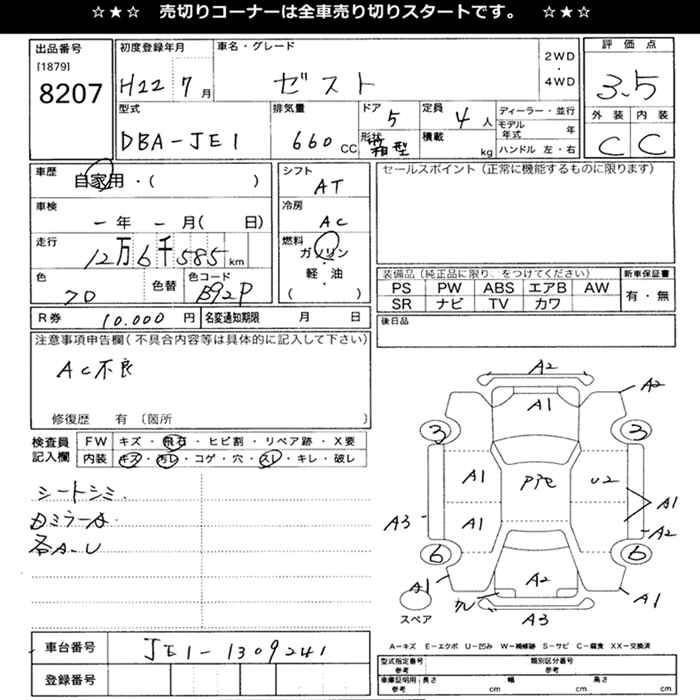 ☆★☆ 売切りコーナーは全車売り切りスタートです。 ☆★☆
出品番号
[1879]
8207
初度登録年月
H22 7月
車名・グレード
ゼスト
2WD
・
4WD
評価点
3.5
型式
DBA-JE1
排気量
660 CC
ドア
5
形状
箱型
定員
4人
積載
kg
ディーラー・並行
モデル年式 年
ハンドル 左・右
外装 内装
C C
車歴
自家用・( )
車検
ー年 ー月( 日)
走行
12万6千585km
色
色替
色コード
B92P
シフト
AT
冷房
AC
燃料
ガソリン
・
軽油
( )
セールスポイント(正常に機能するものに限ります)
装備品(純正品に限り、をつけてください)
PS PW ABS エアB AW
SR ナビ TV カワ
新車保証書
有・無
R券 10.000円 名変通知期限 月 日
後日品
注意事項申告欄(不具合内容等は具体的に記入して下さい)
AC不良
修復歴 有 〔箇所 〕
検査員
記入欄
FW キズ・飛石・ヒビ割・リペア跡・X要
内装 キズ・汚レ・コゲ・穴・スレ・キレ・破レ
シートシミ.
各A-U
A2
A1
A2
3
3
A1
U2
A3
A1
A1
A2
6
6
A2
A1
A1
A3
スペア
A-キズ E-エクボ U-凹み W-補修跡 S-サビ C-腐食 XX-交換済
車台番号 JE1-1309241
登録番号
型式指定番号 参考 類別区分番号 参考
車庫証明用:長さ 参考 cm 幅 cm 高さ cm